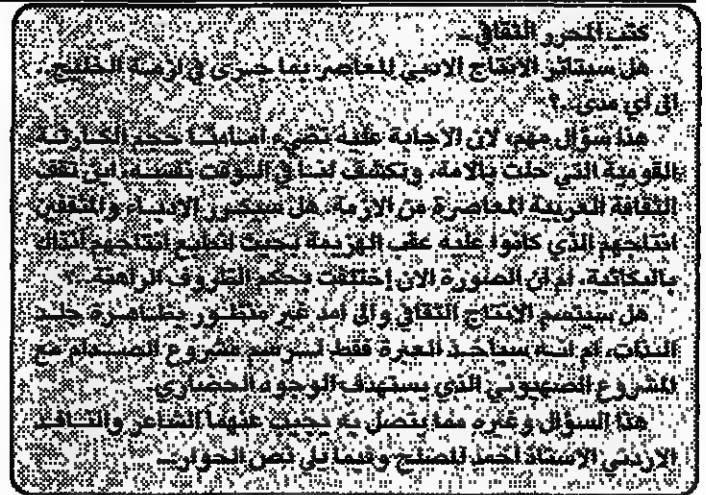 كتب المحرر الثقافي ـ
هل سيتأثر الانتاج الادبي المعاصر بما جرى في ازمة الخليج ..
الى اي مدى..؟
هذا سؤال مهم، لان الاجابة عليه تضيء امامنا حجم الكارثة
القومية التي حلت بالامة، وتكشف لنا في الوقت نفسه، اين تقف
الثقافة العربية المعاصرة من الازمة، هل سيكرر الادباء والمثقفين
انتاجهم الذي كانوا عليه عقب الهزيمة بحيث انطبع انتاجهم انذاك
بالبكائية، ام ان الصورة الان إختلفت بحكم الظروف الراهنة..
هل سيتسم الانتاج الثقافي والى امد غير منظور بظاهرة جلد
الذات، ام انه سيأخذ العبرة فقط ليرسم مشروع الصدام مع
المشروع الصهيوني الذي يستهدف الوجود الحضاري.
هذا السؤال وغيره مما يتصل به يجيب عنهما الشاعر والناقد
الاردني الاستاذ احمد المصلح وفيما يلي نص الحوار..